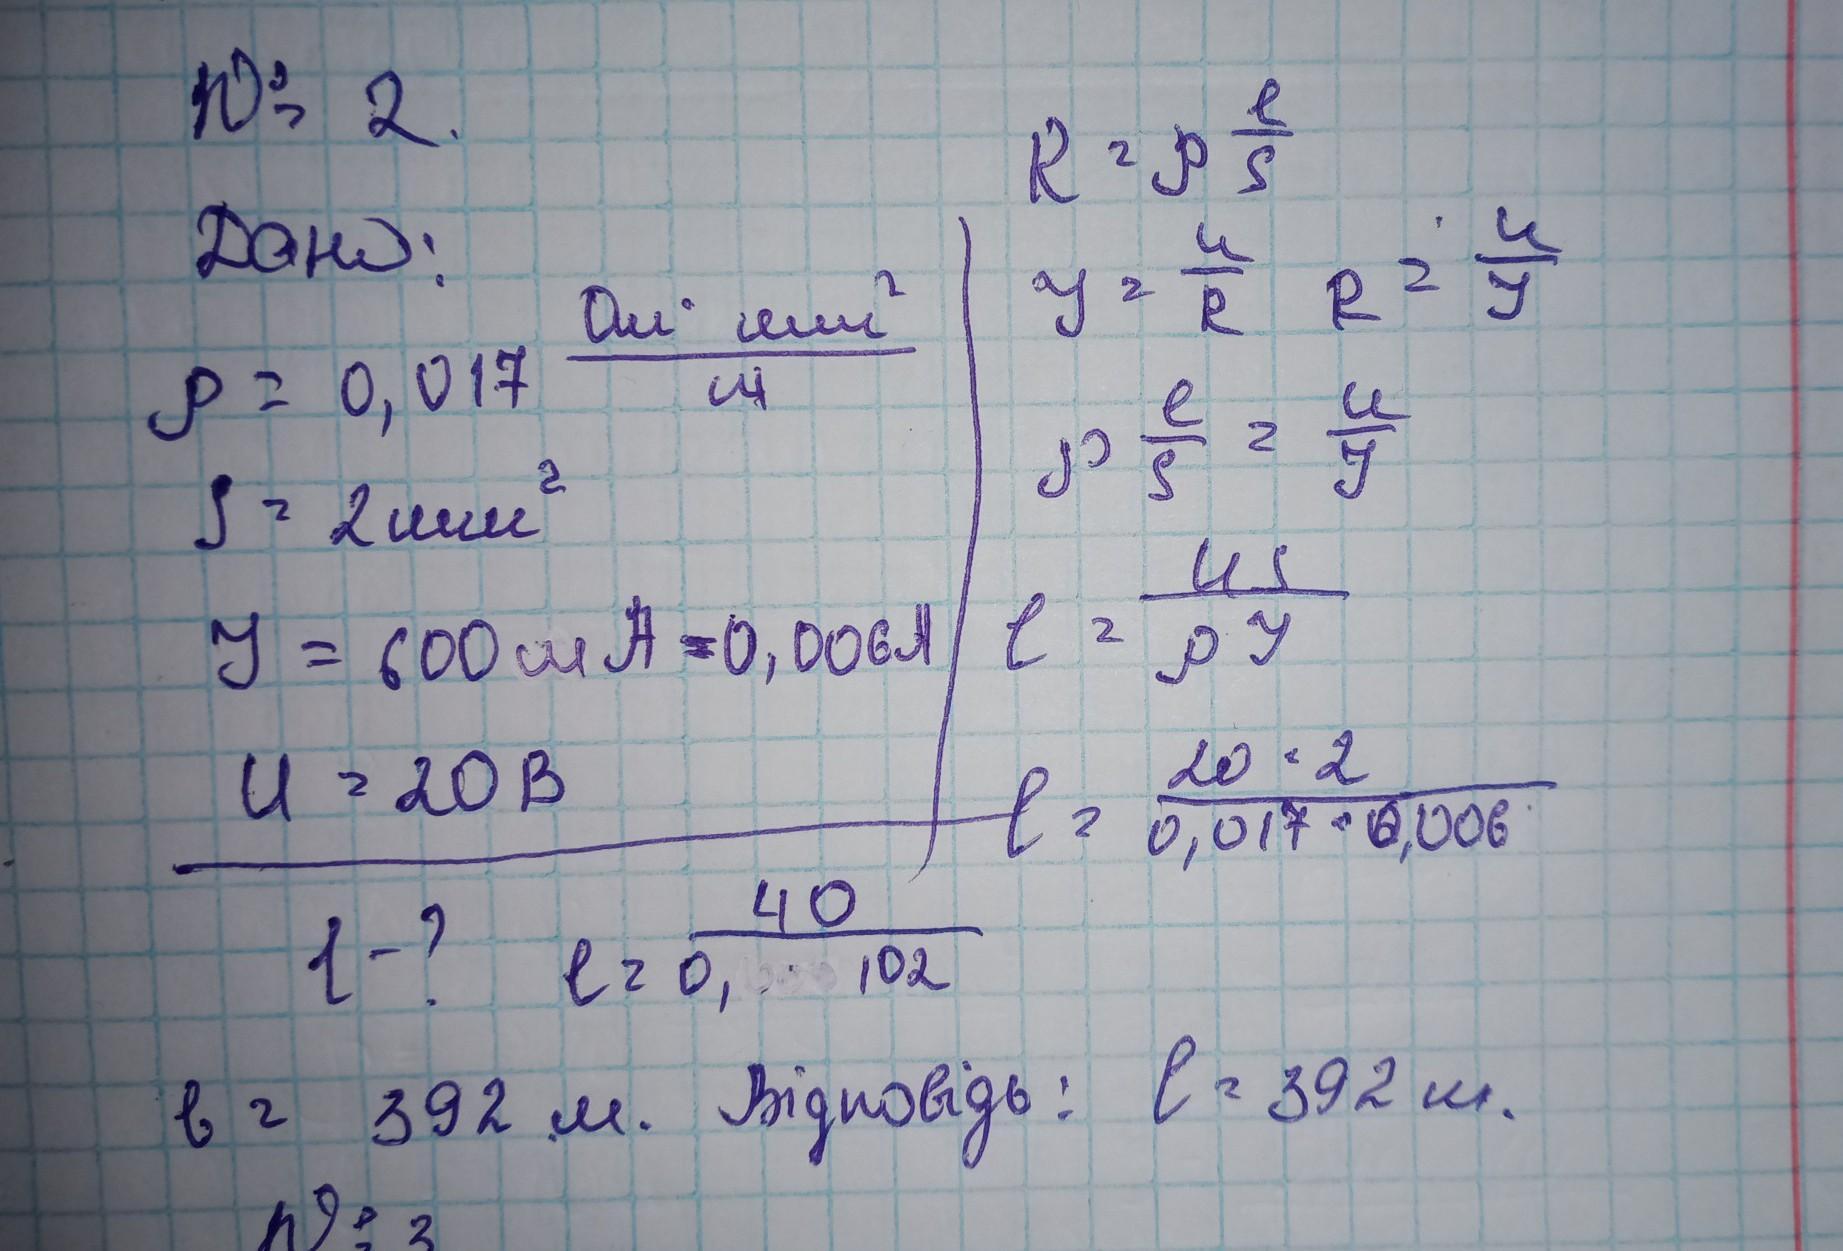 № 2.
Дано:
ρ = 0,017 Ом·мм²/м
S = 2мм²
I = 600мА = 0,006А
U = 20В
l - ?
R = ρ l/S
I = U/R R = U/I
ρ l/S = U/I
l = US/ρI
l = 20·2/0,017·0,006
l = 40/0,102
l = 392 м. Відповідь: l = 392 м.
№ 3